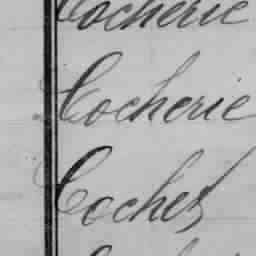 Cocherie
Cocherie
Cochet